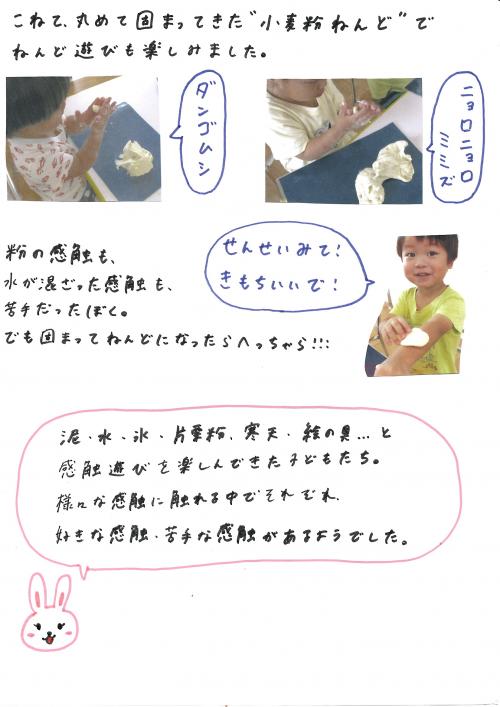 こねて、丸めて固まってきた"小麦粉ねんど"で
ねんど遊びも楽しみました。
ダンゴムシ
ニョロニョロ
ミミズ
粉の感触も、
水が混ざった感触も、
苦手だったぼく。
でも固まってねんどになったらへっちゃら!!!
せんせいみて!
きもちいいで!
泥・水・氷・片栗粉、寒天・絵の具...と
感触遊びを楽しんできた子どもたち。
様々な感触に触れる中でそれぞれ、
好きな感触・苦手な感触があるようでした。